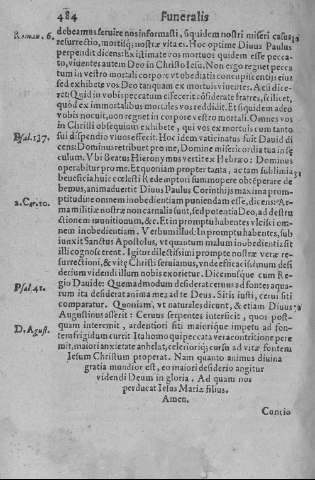 484 Funeralis
Roman. 6. debeamus seruire nos informasti, siquidem nostri miseri casus,
resurrectio, mortisq; nostræ vita es. Hoc optime Diuus Paulus
perpendit dicens: Existimate vos mortuos quidem esse pecca-
to, viuentes autem Deo in Christo Iesu. Non ergo regnet pecca
tum in vestro mortali corpore vt obediatis concupiscentijs eius
sed exhibete vos Deo tanquam ex mortuis viuentes. Ac si dice-
ret: Quid in vobis peccatum efficere cōsiderate fratres, scilicet,
quòd ex immortalibus mortales vos reddidit. Et siquidem adeo
vobis nocuit, non regnet in corpore vestro mortali. Omnes vos
in Christi obsequium exhibete, qui vos ex mortuis cum tanto
Psal. 137. sui dispendio viuos effecit. Hoc idem vaticinatus fuit Dauid di
cens: Dominus retribuet pro me, Domine misericordia tua in sę
culum. Vbi Beatus Hieronymus vertit ex Hebræo: Dominus
operabitur pro me. Et quoniam propter tanta, ac tam sublimia
beneficia huic cœlesti Redemptori summopere obtēperare de
bemus, animaduertit Diuus Paulus Corinthijs maxima prom-
2. Cor. 10. ptitudine omnem inobedientiam puniendam esse, dicens: Ar-
ma militiæ nostræ non carnalia sunt, sed potentia Deo, ad destru
ctionem munitionum, &c. Et in promptu habentes vlcisci om-
nem inobedientiam. Verbum illud: In promptu habentes, sub
iunxit Sanctus Apostolus, vt quantum malum inobedientia sit
illi cognoscerent. Igitur dilectissimi prompte nostræ veræ re-
surrectioni, & vitę Christi seruiamus, vnde efficacissimum desi
derium videndi illum nobis exorietur. Dicimusque cum Re-
Psal. 41. gio Dauide: Quemadmodum desiderat ceruus ad fontes aqua-
rum ita desiderat anima mea, ad te Deus. Sitis iusti, cerui siti
comparatur. Quoniam, vt naturales dicunt, & etiam Diuus
D. Agust. Augustinus asserit: Ceruus serpentes interficit, quos post-
quam interemit, ardentiori siti maiorique impetu ad fon-
tem frigidum currit Ita homo qui peccata vera contritione pere
mit, maiori anxietate anhelat, celeriori q; cursu ad vitæ fontem
Iesum Christum properat. Nam quanto animus diuina
gratia mundior est, eo maiori desiderio angitur
videndi Deum in gloria. Ad quam nos
perducat Iesus Mariæ filius.
Amen.
Concio